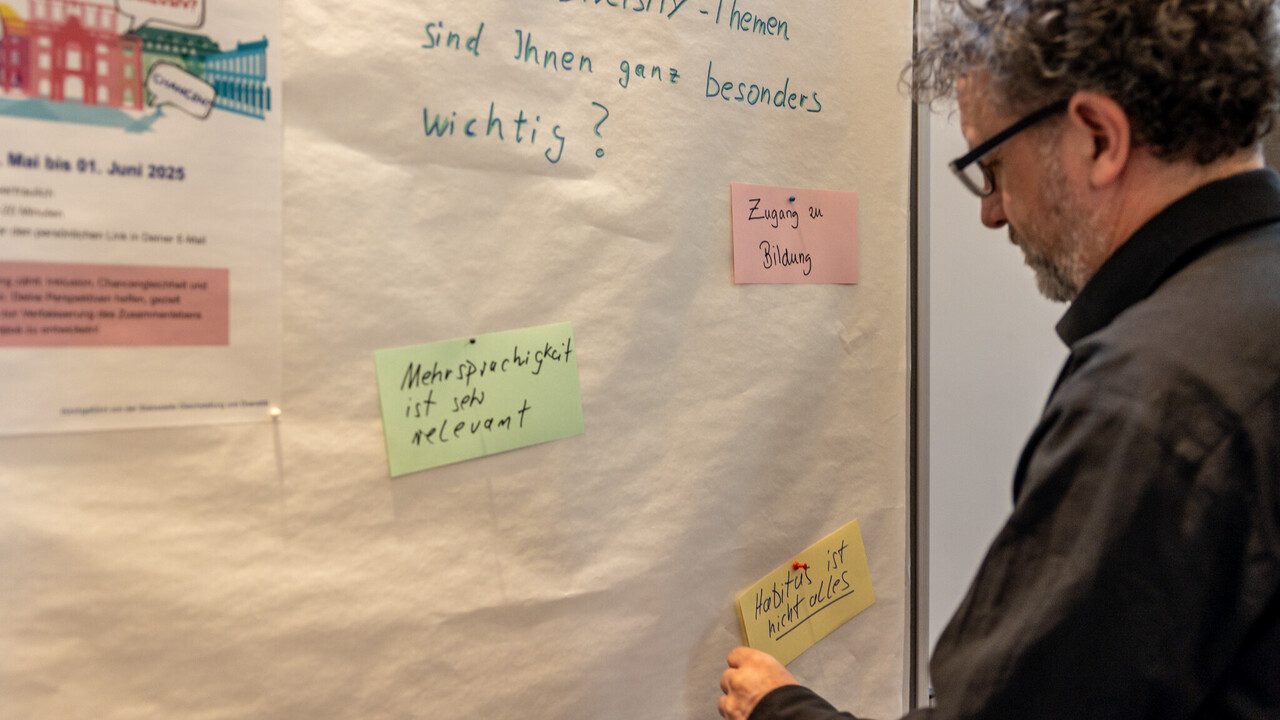 CHANCEN?
. Mai bis 01. Juni 2025
vertraulich
Minuten
den persönlichen Link in Deiner E-Mail
zählt: Inklusion, Chancengleichheit und
Deine Perspektiven helfen, gezielt
zur Verbesserung des Zusammenlebens
zu entwickeln!
Diversity-Themen
sind Ihnen ganz besonders
wichtig?
Zugang zu
Bildung
Mehrsprachigkeit
ist sehr
relevant
Habitus ist
nicht alles